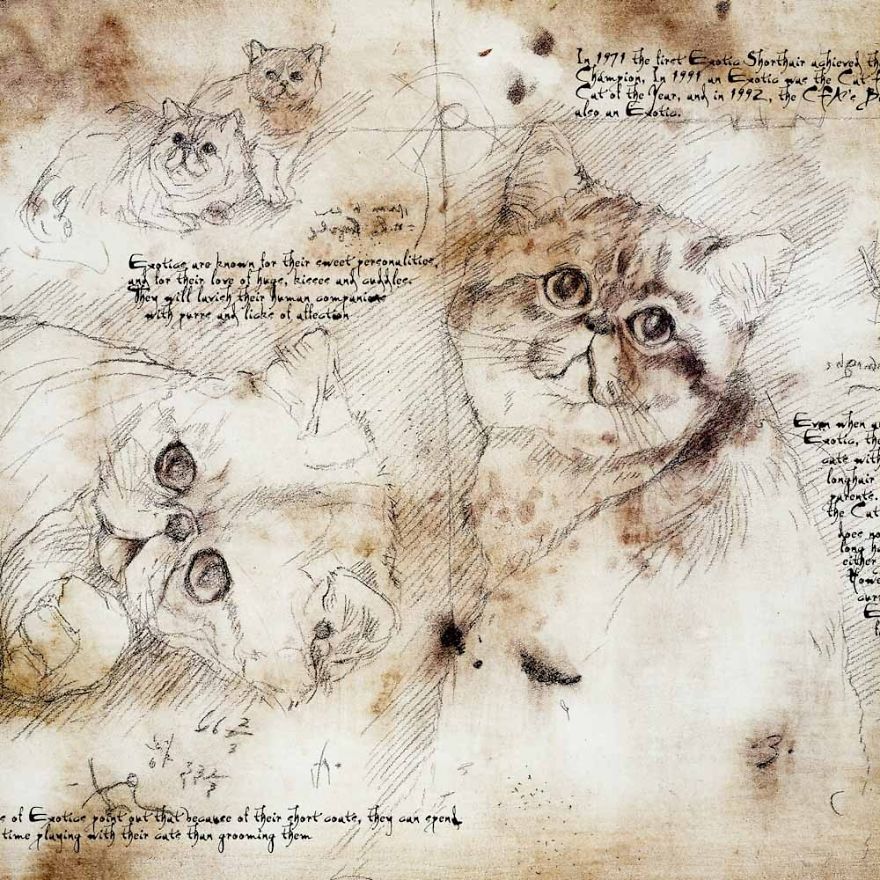 In 1971 the first Exotic Shorthair achieved th
Champion. In 1991 an Exotic was the Cat F
Cat of the Year, and in 1992, the CFA's Be
also an Exotic.
Exotics are known for their sweet personalities,
and for their love of hugs, kisses and cuddles.
They will lavish their human companions
with purrs and licks of affection
Even when
Exotic, the
cats with
longhair
parents.
the Cat
does no
long ha
either
Howe
curr
E
66 2
3
3.
s of Exotics point out that because of their short coats, they can spend
time playing with their cats than grooming them